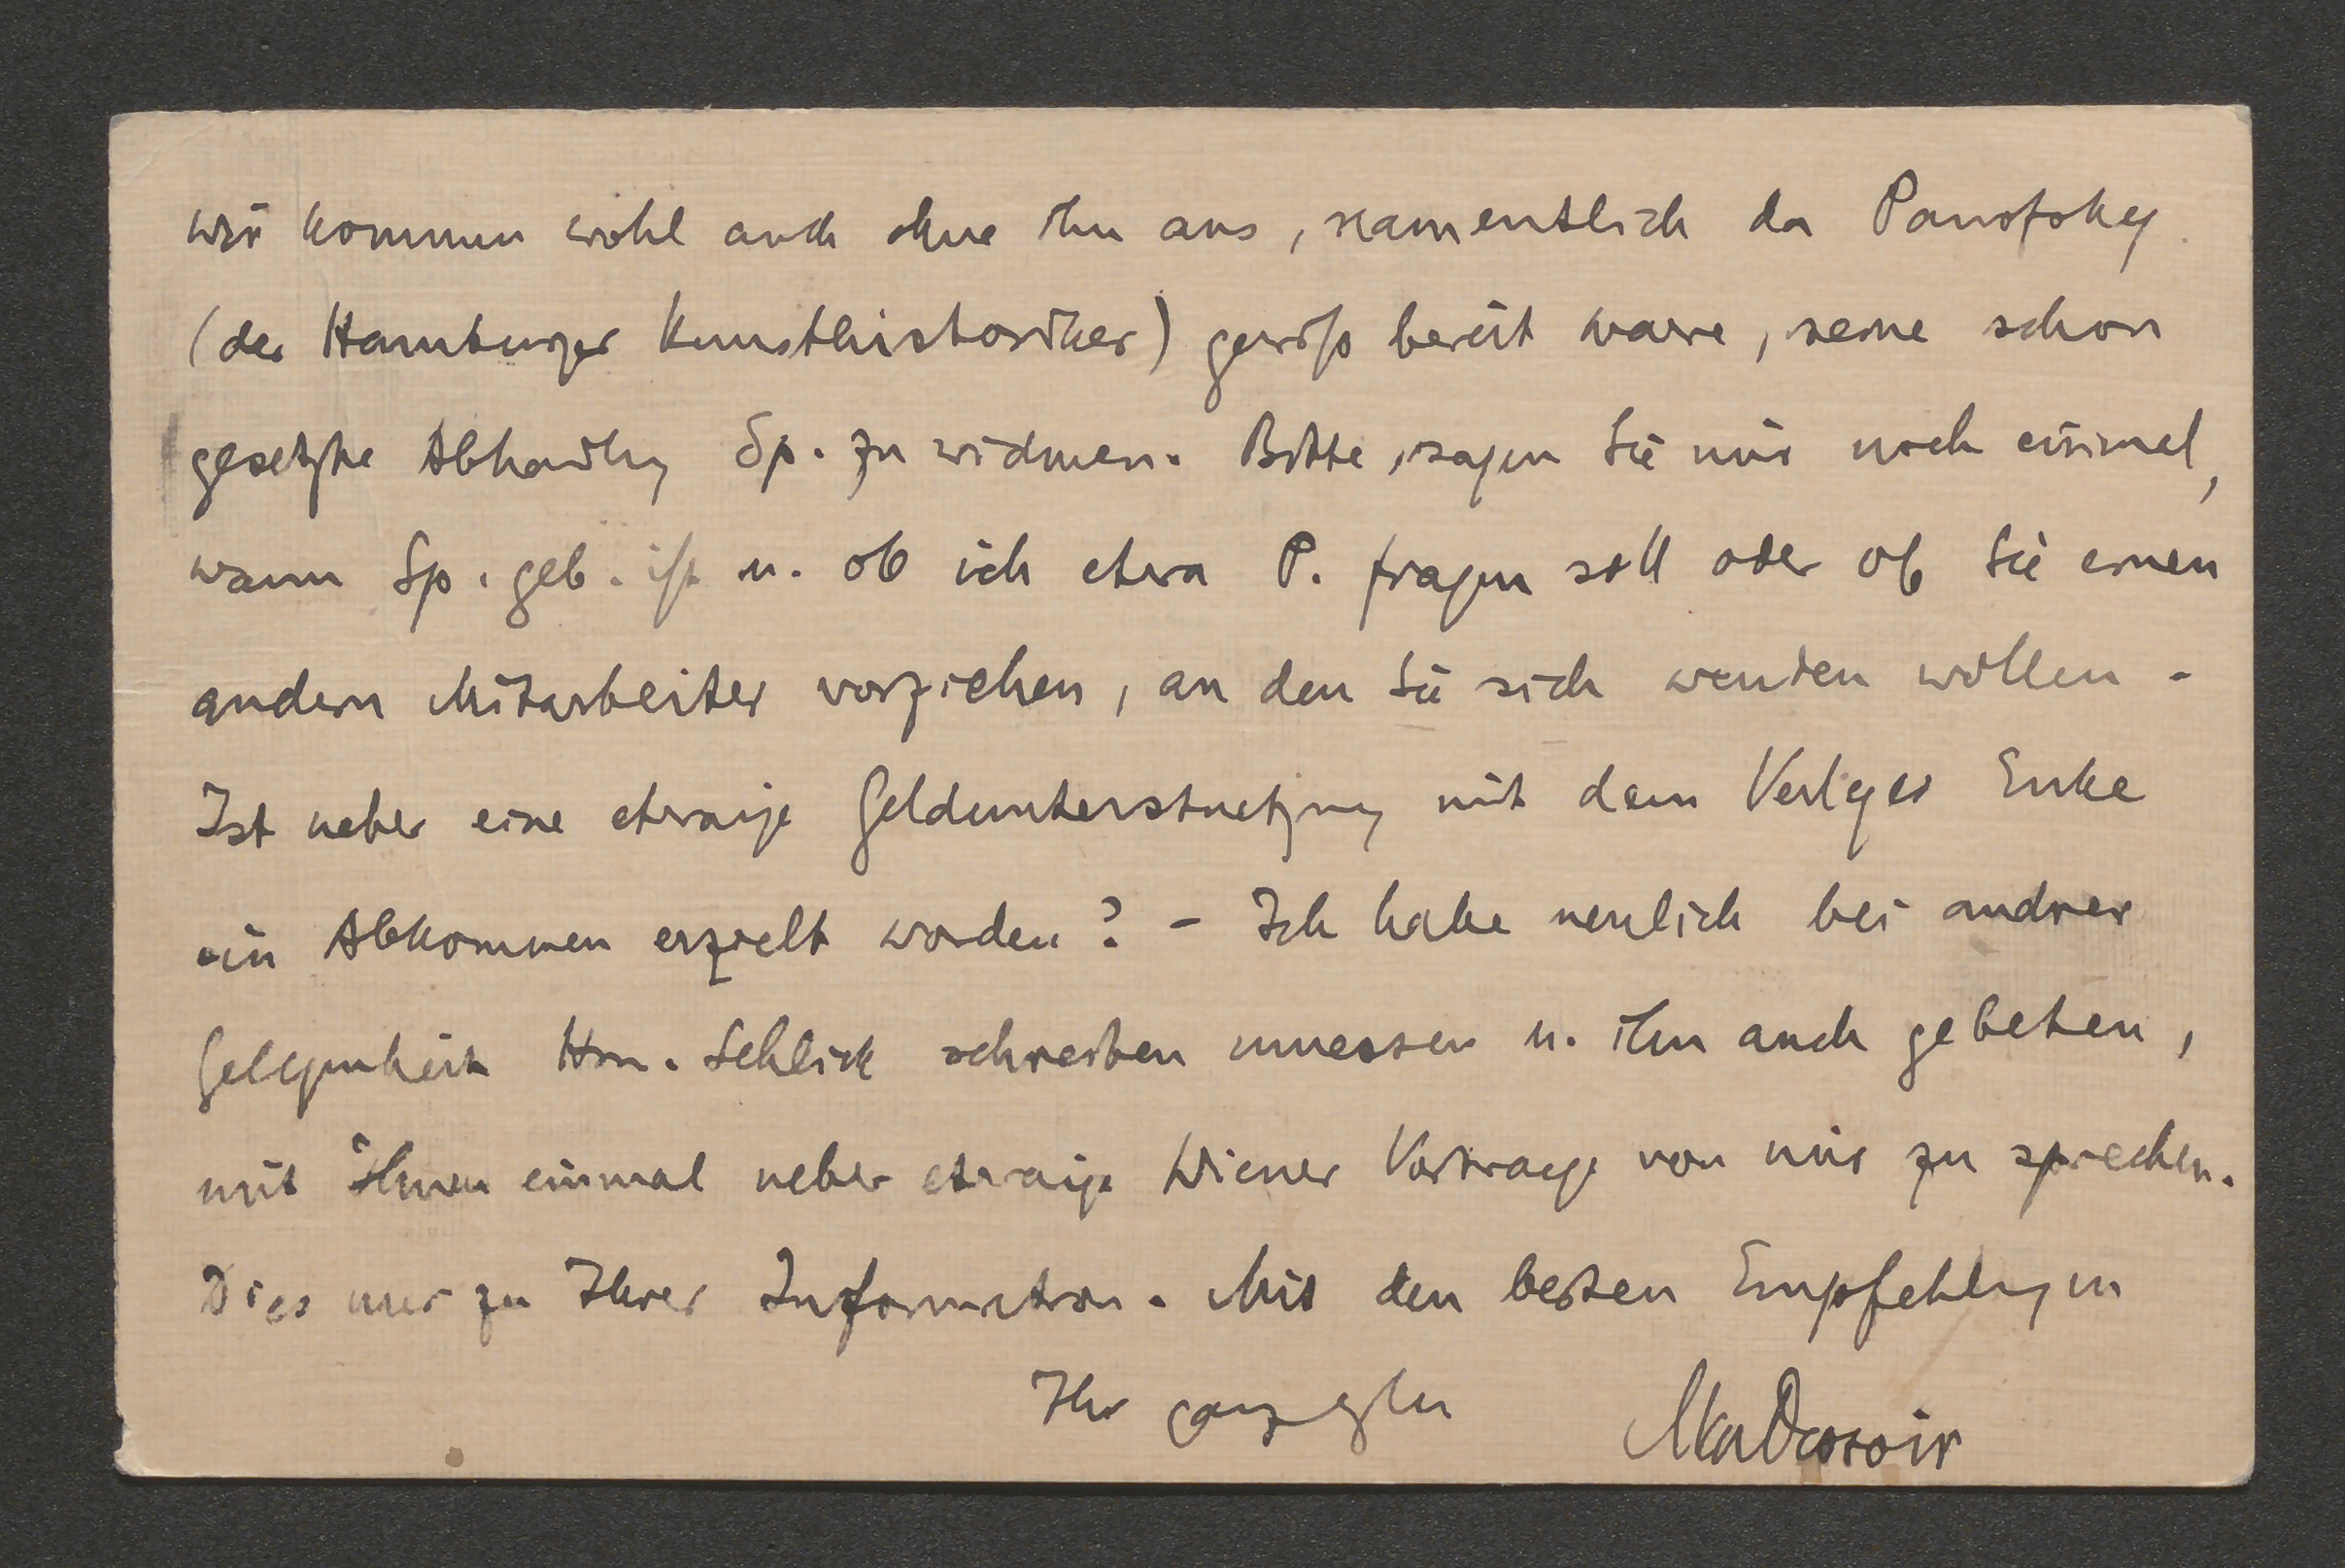 wir kommen wohl auch ohne ihn aus, namentlich da Panofsky
(der Hamburger Kunsthistoriker) gewiß bereit waere, seine schon
gesetzte Abhandlg Sp. zu widmen. Bitte, sagen Sie mir noch einmal,
wann Sp. geb. ist u. ob ich etwa P. fragen soll oder ob Sie einen
andern Mitarbeiter vorziehen, an den Sie sich wenden wollen.
Ist ueber eine etwaige Geldunterstuetzung mit dem Verleger Enke
ein Abkommen erzielt worden? – Ich habe neulich bei andrer
Gelegenheit Hrn. Schlick schreiben muessen u. ihn auch gebeten,
mit Ihnen einmal ueber etwaige Wiener Vortraege von mir zu sprechen.
Dies nur zu Ihrer Information. Mit den besten Empfehlgen
Ihr ganz erg
Max Dessoir